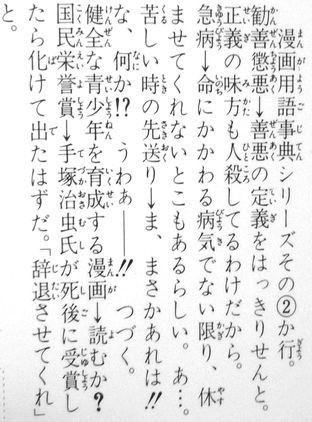 漫画用語事典シリーズその②か行。
勧善懲悪→善悪の定義をはっきりせんと。
正義の味方も人殺してるわけだから。
急病→命にかかわる病気でない限り、休
ませてくれないとこもあるらしい。あ…。
苦しい時の先送り→ま、まさかあれは!!
な、何か!? うわぁ――!! つづく。
健全な青少年を育成する漫画→読むか?
国民栄誉賞→手塚治虫氏が死後に受賞し
たら化けて出てたはずだ。「辞退させてくれ」
と。